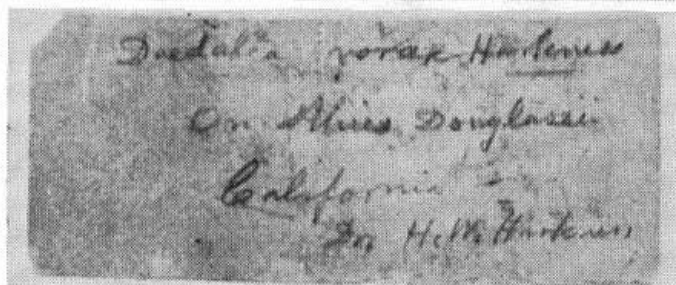 Daedalea vorax Harkness
On Abies Douglassii
California
Dr H. W. Harkness